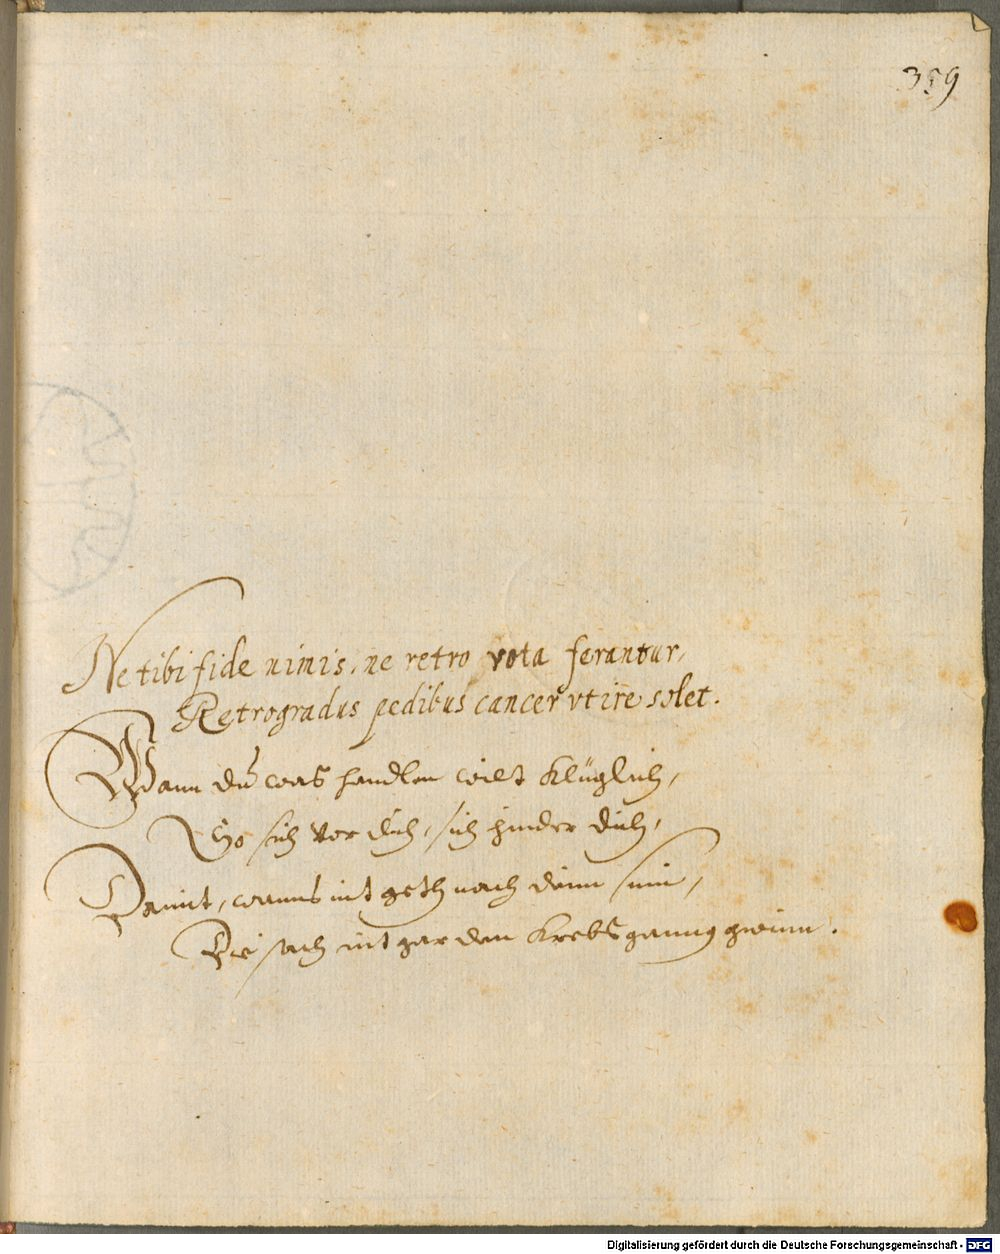 359
Ne tibi fide nimis, ne retro vota ferantur,
Retrogradus pedibus cancer vt ire solet.
Wann du was handlen wilt klüglich,
So sich vor dich, sich hinder dich,
Damit, wanns nit geth nach deim sinn,
Die sach nit gar den Krebsganng gwinn.
Digitalisierung gefördert durch die Deutsche Forschungsgemeinschaft - DFG